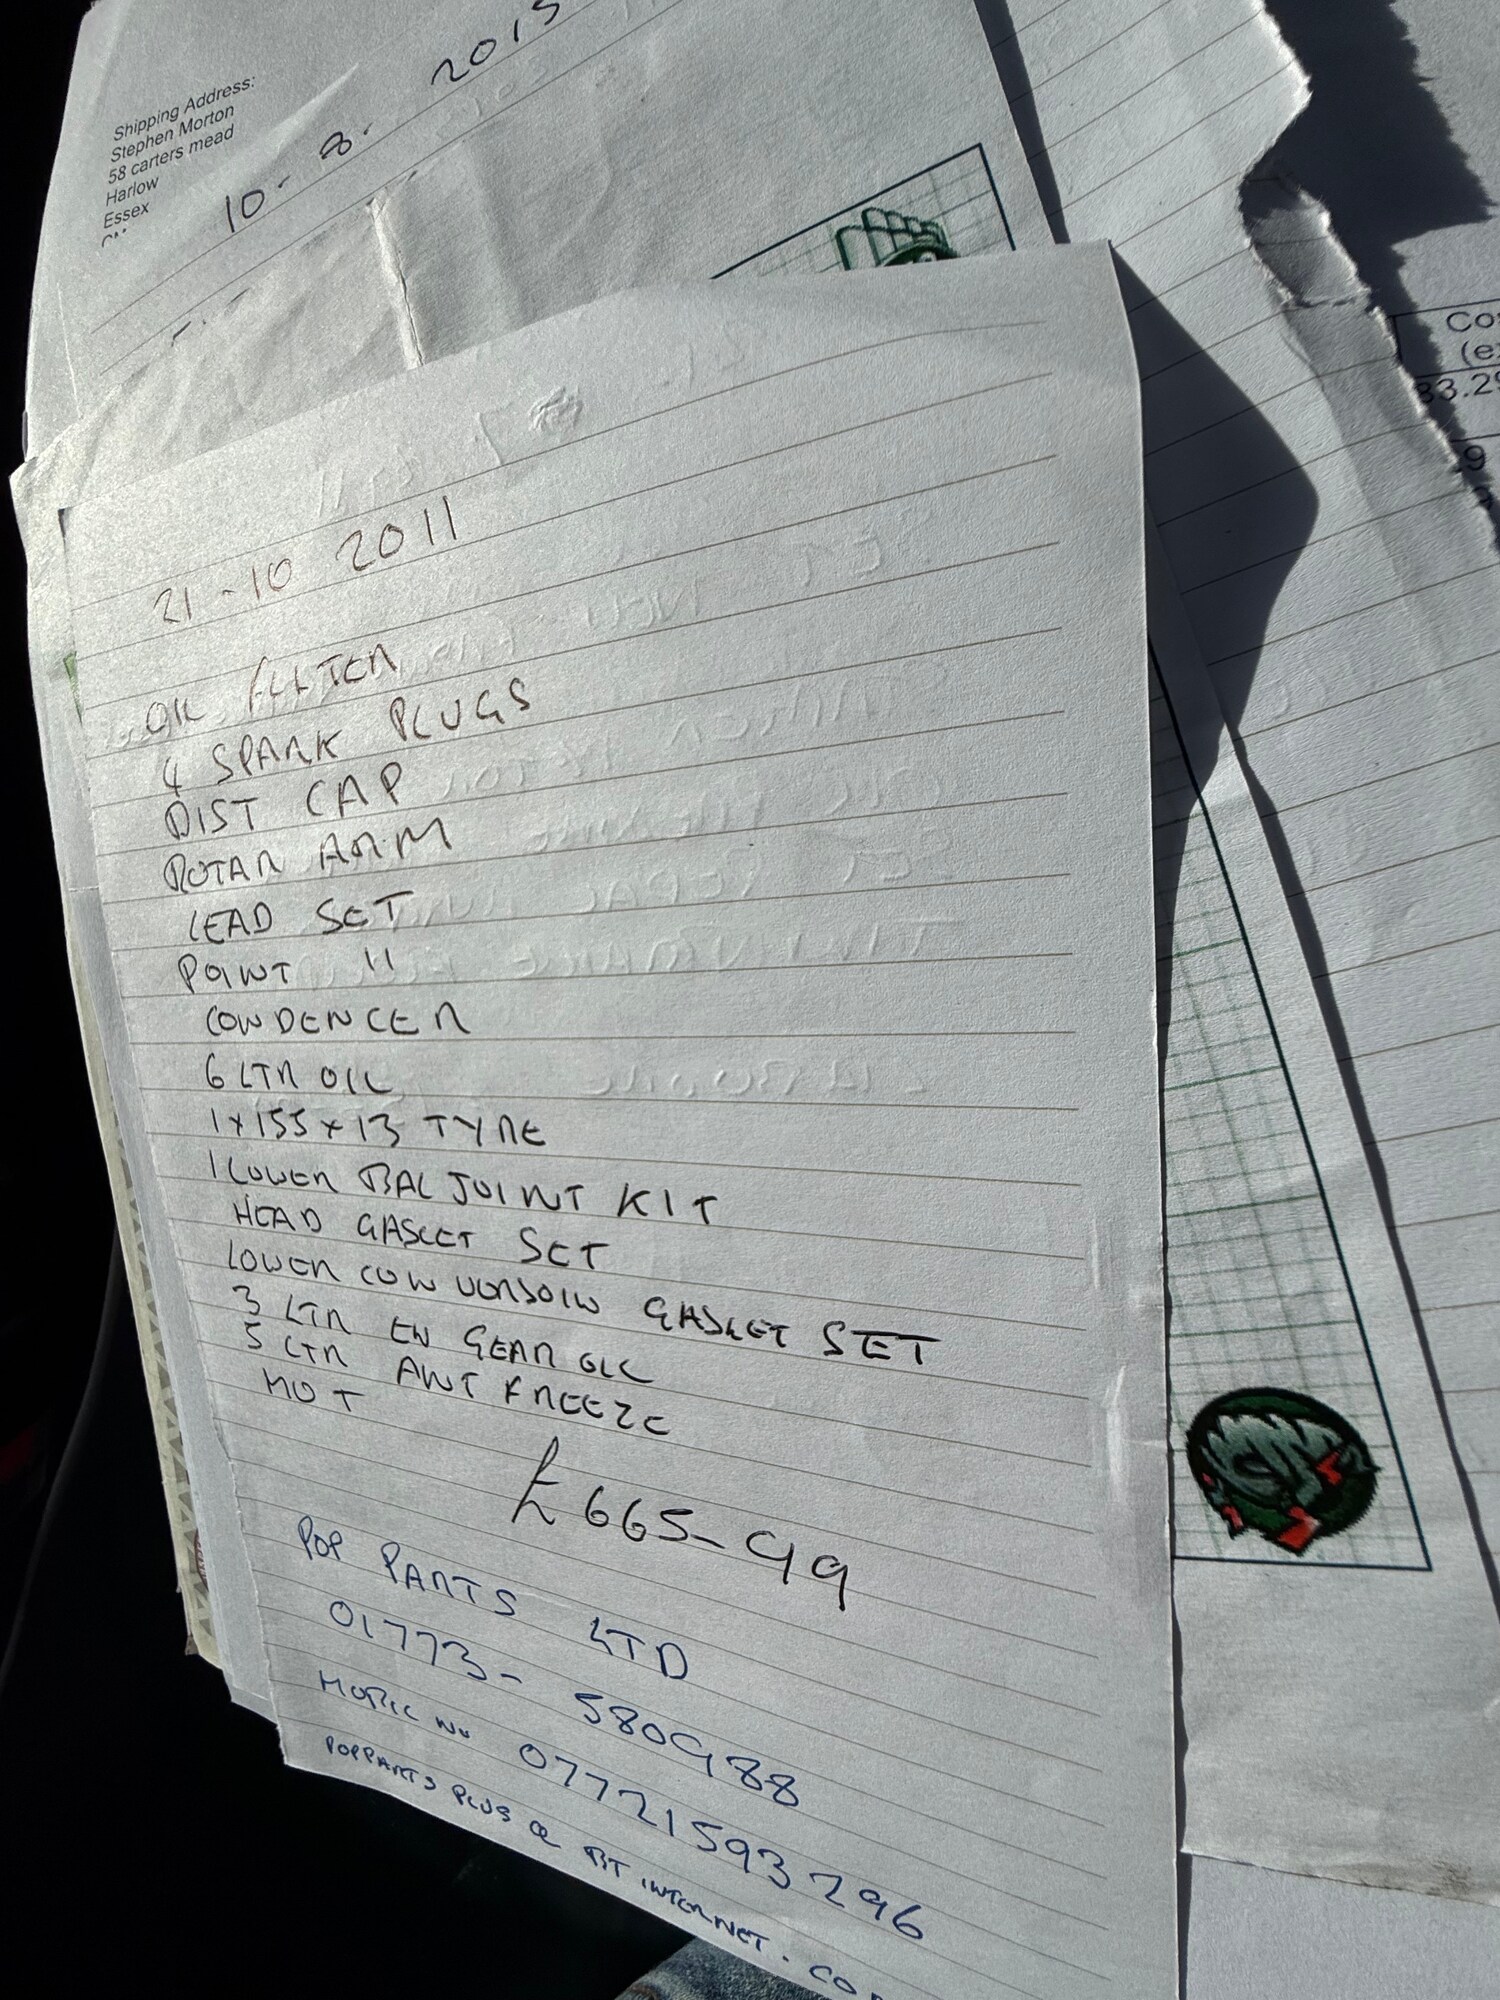 Shipping Address:
Stephen Morton
58 carters mead
Harlow
Essex
10-8-2015
21-10 2011
OIL FILTER
4 SPARK PLUGS
DIST CAP
ROTAR ARM
LEAD SET
POINT 11
CONDENCER
6 LTR OIL
1 x 155 x 13 TYRE
1 LOWER BAL JOINT KIT
HEAD GASCET SET
LOWER CON VERSOIN GASKET SET
3 LTR EN GEAR OIL
5 LTR ANT FREEZE
MOT
£665-99
POP PARTS LTD
01773- 580988
MOBIL NO 07721593296
POPPARTS PLUS @ BT INTERNET. CO
Co
(e
33.29
9